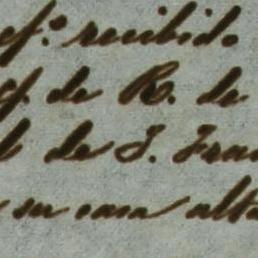 ef.º recibido
q. de R. de
de S. Fran
su casa alta